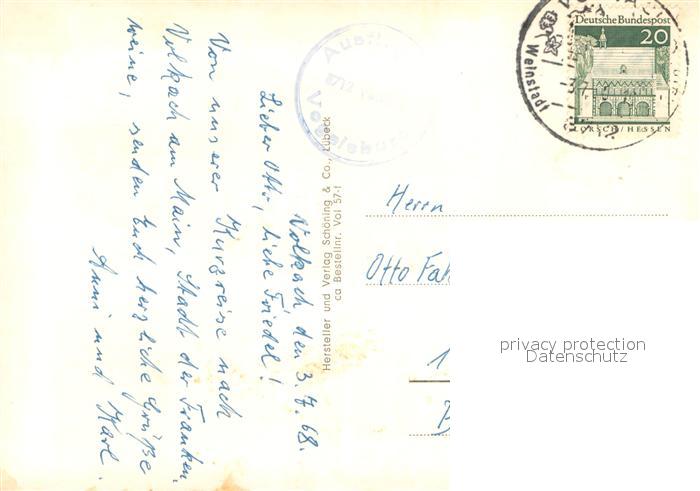 Volkach den 3.7.68.
Lieber Otto, liebe Friedel!
Von unserer Kurzreise nach
Volkach am Main, Stadt der Franken-
weine, senden Euch herzliche Grüße
Anni und Karl.
Hersteller und Verlag Schöning & Co., Lübeck
ca Bestellnr. Vol 57-1
8712
Vogelsburg
Weinstadt
Deutsche Bundespost
20
LORSCH/HESSEN
Herrn
Otto Fah
1
privacy protection
Datenschutz